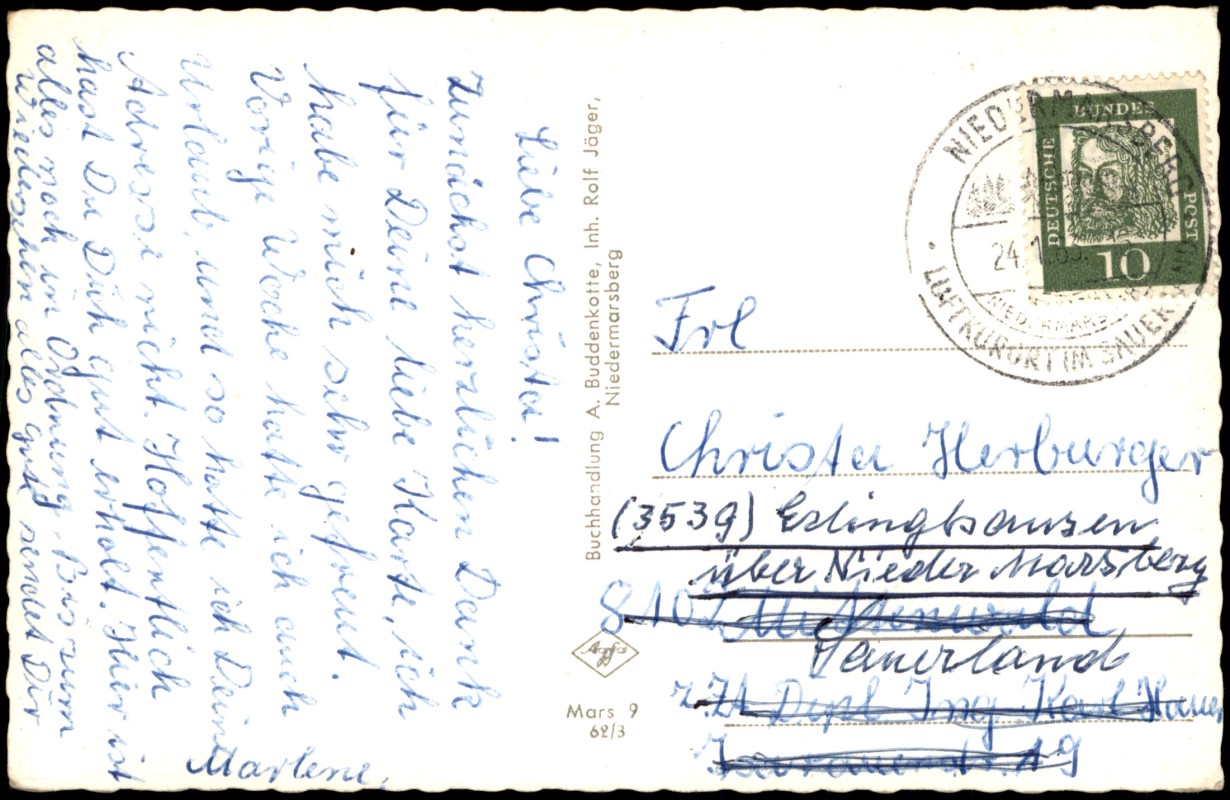 Liebe Christa!
Zunächst herzlichen Dank
für Deine liebe Karte, ich
habe mich sehr gefreut.
Vorige Woche hatte ich auch
Urlaub, und so hatte ich Deine
Adresse nicht. Hoffentlich
hast Du Dich gut erholt. Hier ist
alles noch in Ordnung. Bis zum
Wiedersehen alles gute sendet Dir
Marlene,
Buchhandlung A. Buddenkotte, Inh. Rolf Jäger,
Niedermarsberg
Mars 9
62/3
DEUTSCHE BUNDES POST
10
NIEDERMARSBERG
24.
LUFTKURORT IM SAUERLAND
Frl
Christa Herburger
(3539) Erlinghausen
über Nieder Marsberg
8102 Mittenwald
Sauerland
z.Zt Dipl Ing Karl
19